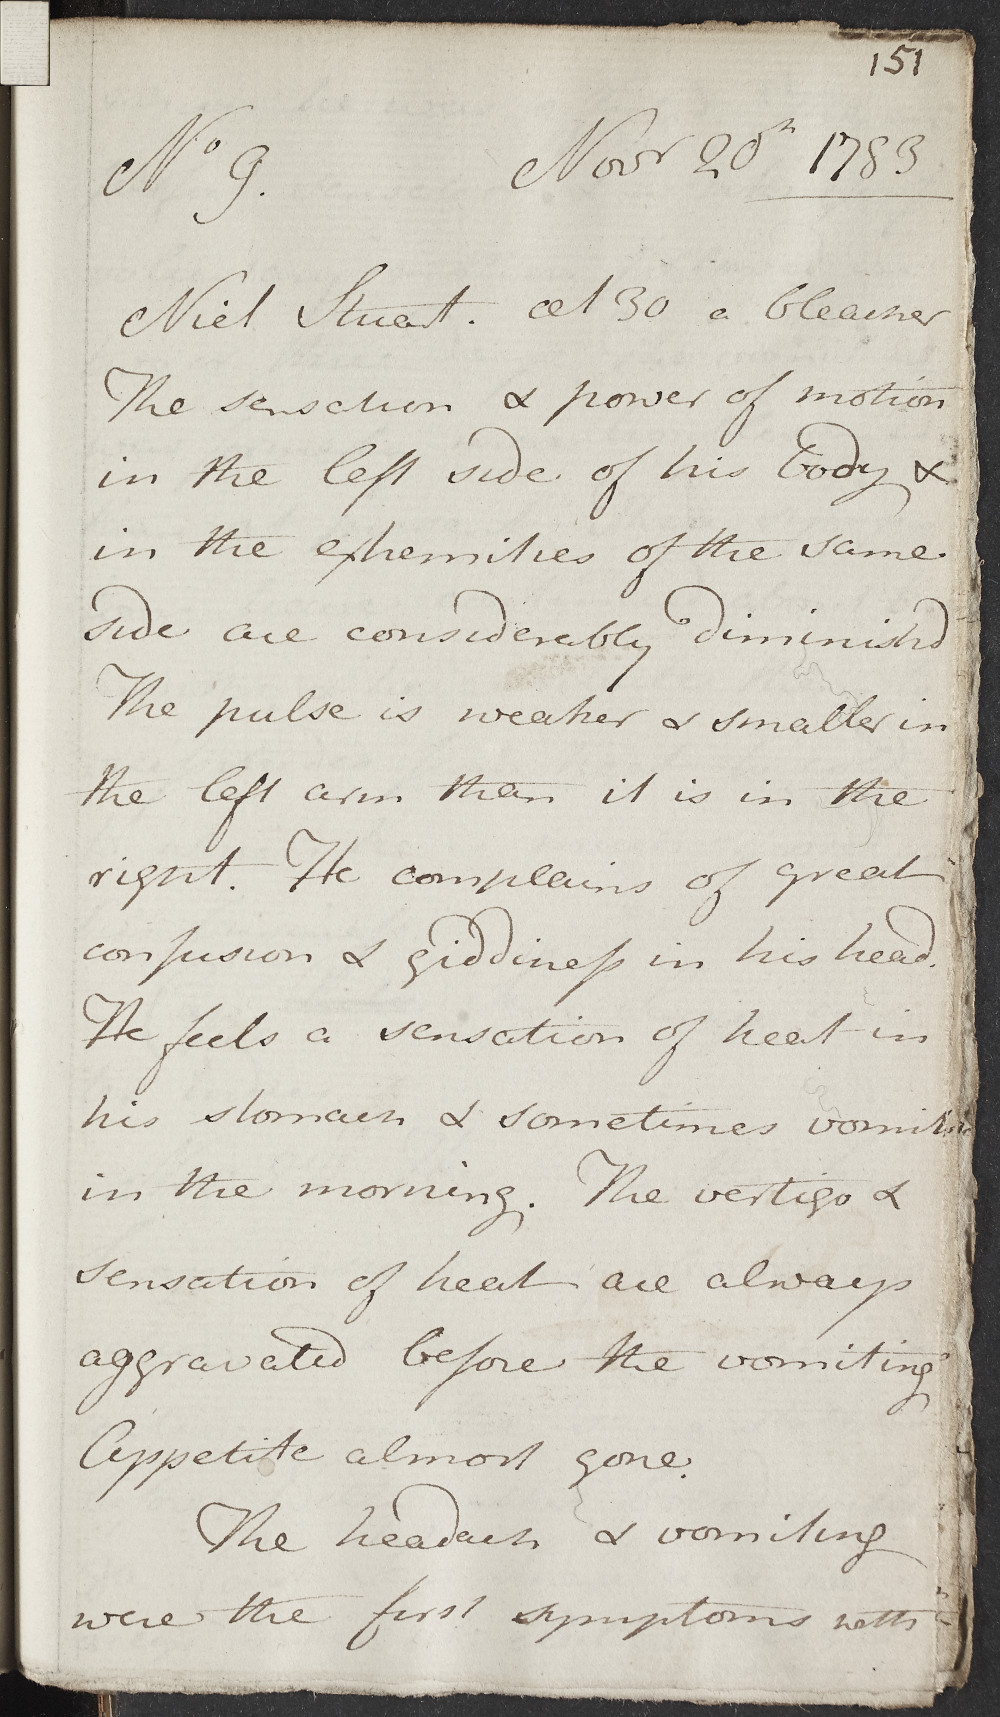 151
No 9. Novr 20th 1783
Niel Stuart. æt 30 a bleacher
The sensation & power of motion
in the left side of his body &
in the extremities of the same
side are considerably diminishd
The pulse is weaker & smaller in
the left arm than it is in the
right. He complains of great
confusion & giddiness in his head.
He feels a sensation of heat in
his stomach & sometimes vomits
in the morning. The vertigo &
sensation of heat are always
aggravated before the vomiting
Appetite almost gone.
The headach & vomiting
were the first symptoms with